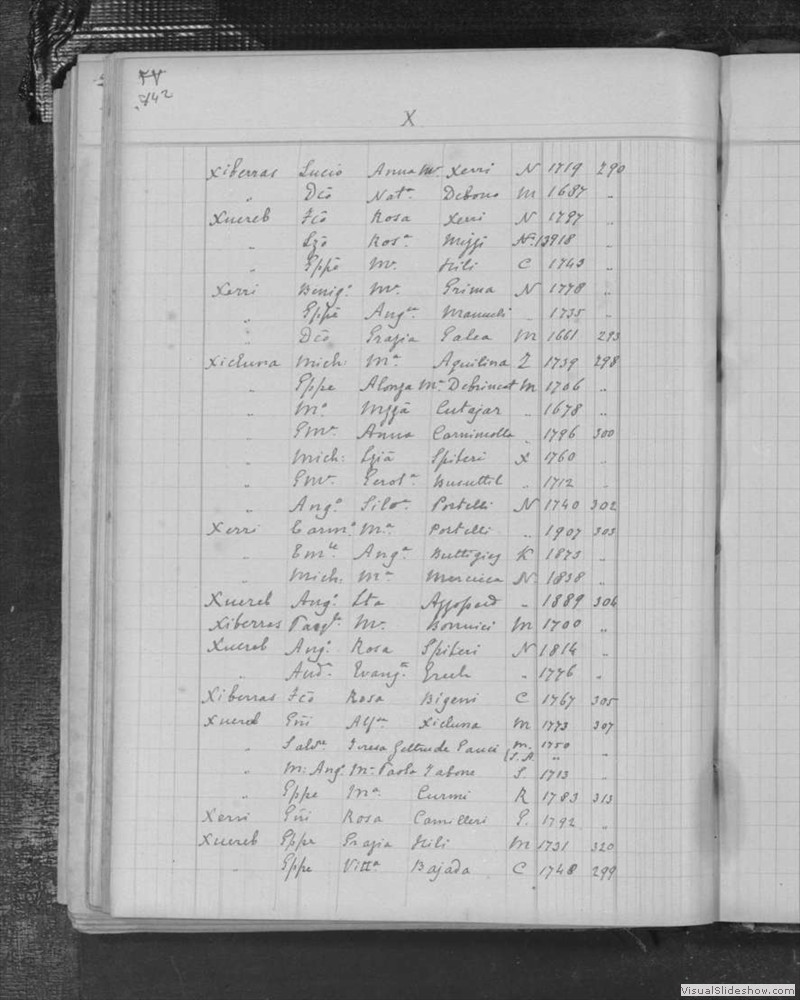 742
X
Xiberras Lucio Anna Mª Xerri N 1719 290
" Dcō Natª Debono M 1687 "
Xuereb Fcō Rosa Xerri N 1797 "
" Lzō Rosª Mizzi N 1918 "
" Gppē Mª Hili C 1743 "
Xerri Benigº Mª Grima N 1778 "
" Gppē Angª Manueli " 1735 "
" Dcō Grazia Galea M 1661 293
Xicluna Mich: Mª Aquilina Z 1739 298
" Gppe Alonza Mª Debrincat M 1706 "
" Mº Cutajar " 1678 "
" Gmª Anna " 1796 300
" Mich: Lziā Spiteri X 1760 "
" Gmª Gerolª Busuttil " 1712 "
" Angº Silvª Portelli N 1740 302
Xerri Carmº Mª Portelli " 1907 303
" Emle Angª Buttigieg K 1873 "
" Mich: Mª Mercieca N 1838 "
Xuereb Angº Lta Azzopard " 1889 304
Xiberras Pasqle Mª Bonnici M 1700 "
Xuereb Angº Rosa Spiteri N 1814 "
" Andª Evangª Grech " 1776 "
Xiberras Fcō Rosa Bigeni C 1767 305
Xuereb Gñi Alfª Xicluna M 1773 307
" Salvre Teresa Geltrude Pauci M. 1750 "
(S.A. "
" M: Angº Mª Paola Tabone S 1713 "
" Gppe Mª Curmi R 1783 313
Xerri Gñi Rosa Camilleri G. 1792 "
Xuereb Gppe Grazia Hili M 1731 320
" Gppe Vittª Bajada C 1748 299
VisualSlideshow.com